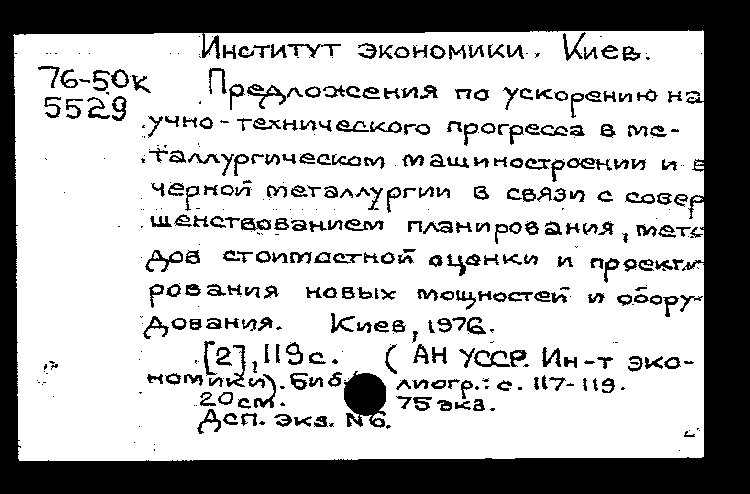 Институт экономики. Киев.
76-50к
5529
Предложения по ускорению на
учно-технического прогресса в ме-
таллургическом машиностроении и в
черной металлургии в связи с совер
шенствованием планирования, мето
дов стоимостной оценки и проекти-
рования новых мощностей и обору-
дования. Киев, 1976.
[2], 119 с. (АН УССР. Ин-т эко-
номики). Библиогр.: с. 117-119.
20 см. 75 экз.
Дсп. Экз. №6.